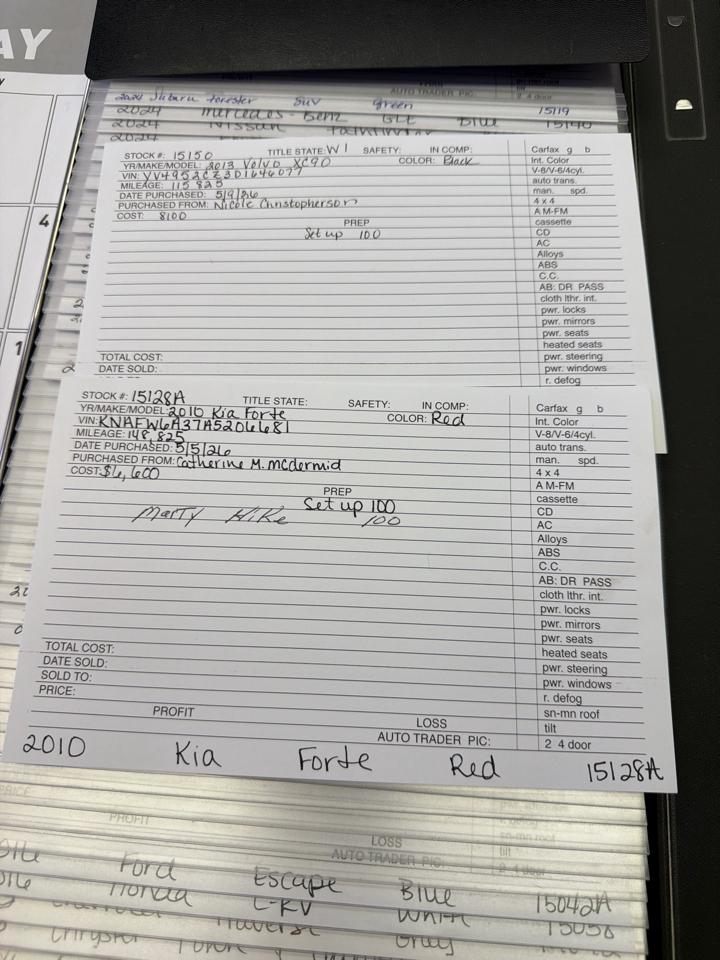 AY
4
1
AUTO TRADER PIC:
2 4 door
2024 Subaru Forester SUV green
2024 Mercedes-Benz GLE Blue 15119
2024 Nissan Pathfinder 15140
2024
STOCK #: 15150 TITLE STATE: WI SAFETY: IN COMP: Carfax g b
YR/MAKE/MODEL: 2013 Volvo XC90 COLOR: Black Int. Color
VIN: YV4952CZ3D1646077 V-8/V-6/4cyl.
MILEAGE: 115 825 auto trans.
DATE PURCHASED: 5/9/26 man. spd.
PURCHASED FROM: Nicole Christopherson 4 x 4
COST: 8100 A M-FM
PREP cassette
Set up 100 CD
AC
Alloys
ABS
C.C.
AB: DR PASS
cloth lthr. int.
pwr. locks
pwr. mirrors
pwr. seats
heated seats
TOTAL COST: pwr. steering
DATE SOLD: pwr. windows
r. defog
STOCK #: 15128A TITLE STATE: SAFETY: IN COMP: Carfax g b
YR/MAKE/MODEL: 2010 Kia Forte COLOR: Red Int. Color
VIN: KNAFW6A37A5206681 V-8/V-6/4cyl.
MILEAGE: 148,825 auto trans.
DATE PURCHASED: 5/5/26 man. spd.
PURCHASED FROM: Catherine M. McDermid 4 x 4
COST: $6,600 A M-FM
PREP cassette
Set up 100 CD
Marty Hike 100 AC
Alloys
ABS
C.C.
AB: DR PASS
cloth lthr. int.
pwr. locks
pwr. mirrors
pwr. seats
TOTAL COST: heated seats
DATE SOLD: pwr. steering
SOLD TO: pwr. windows
PRICE: r. defog
PROFIT sn-mn roof
LOSS tilt
AUTO TRADER PIC: 2 4 door
2010 Kia Forte Red 15128A
PROFIT
LOSS
AUTO TRADER PIC:
Ford Escape Blue 15042A
Honda C-RV White 15058
Traverse
Chrysler Town Gray